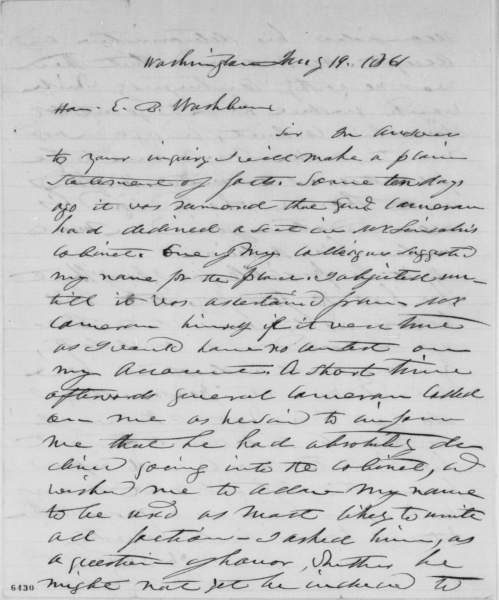 Washington Jany 19. 1861
Hon. E. B. Washburne
Sir In answer
to your inquiry I will make a plain
statement of facts. Some ten days
ago it was rumored that Genl Cameron
had declined a seat in Mr Lincoln's
cabinet. One of my colleagues suggested
my name for the place. I objected un-
till it was ascertained from Mr
Cameron himself if it were true
as I would have no contest on
my account. A short time
afterwards general Cameron called
on me as he said to inform
me that he had absolutely de-
clined going into the cabinet, and
wished me to allow my name
to be used as most likely to unite
all factions — I asked him, as
a question of honor, whether he
might not yet be induced to
6430